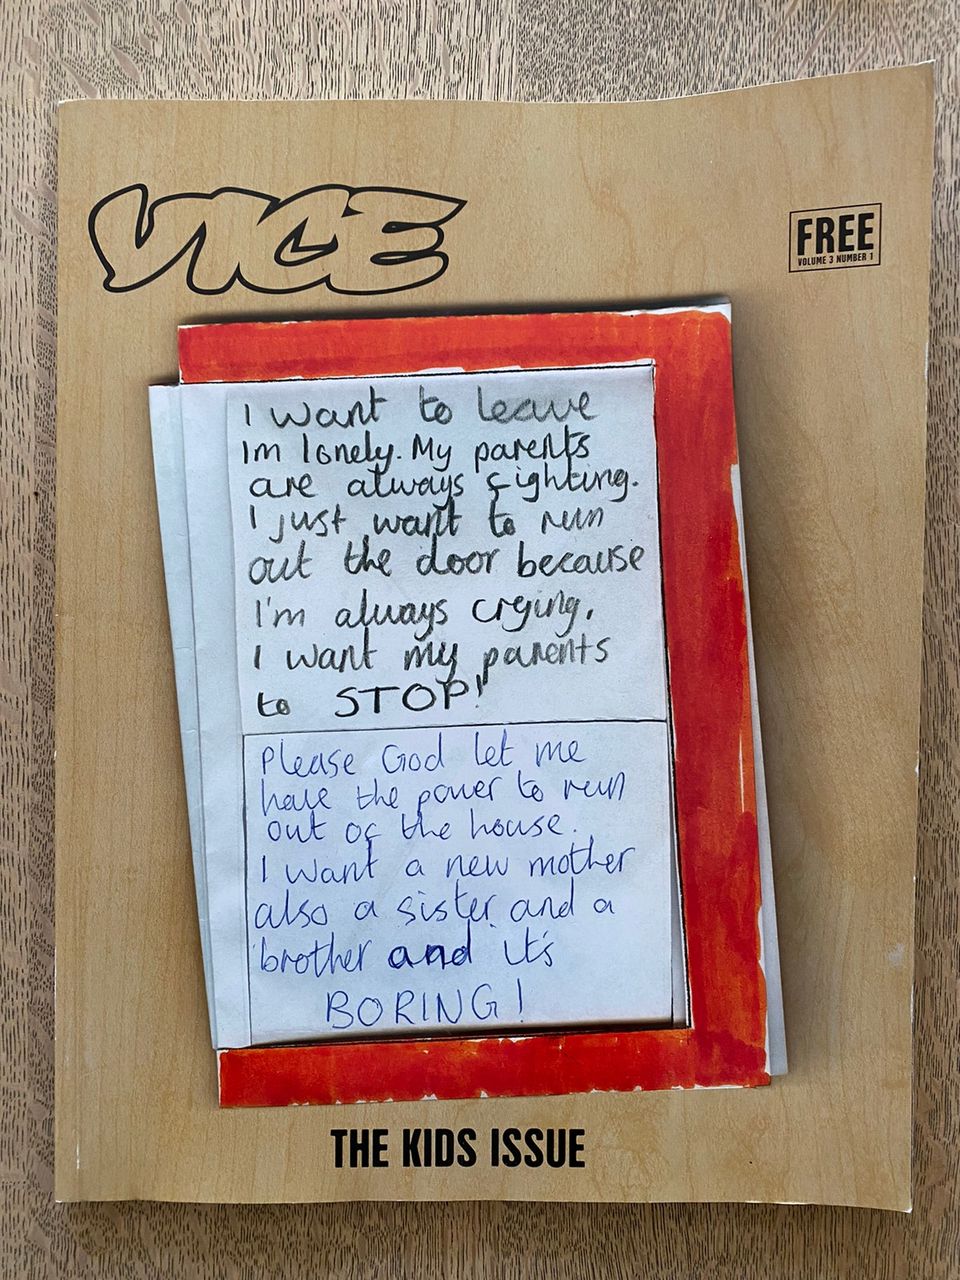 VICE
FREE
VOLUME 3 NUMBER 1
I want to leave
Im lonely. My parents
are always fighting.
I just want to run
out the door because
I'm always crying,
I want my parents
to STOP!
Please God let me
have the power to run
out of the house.
I want a new mother
also a sister and a
brother and it's
BORING!
THE KIDS ISSUE